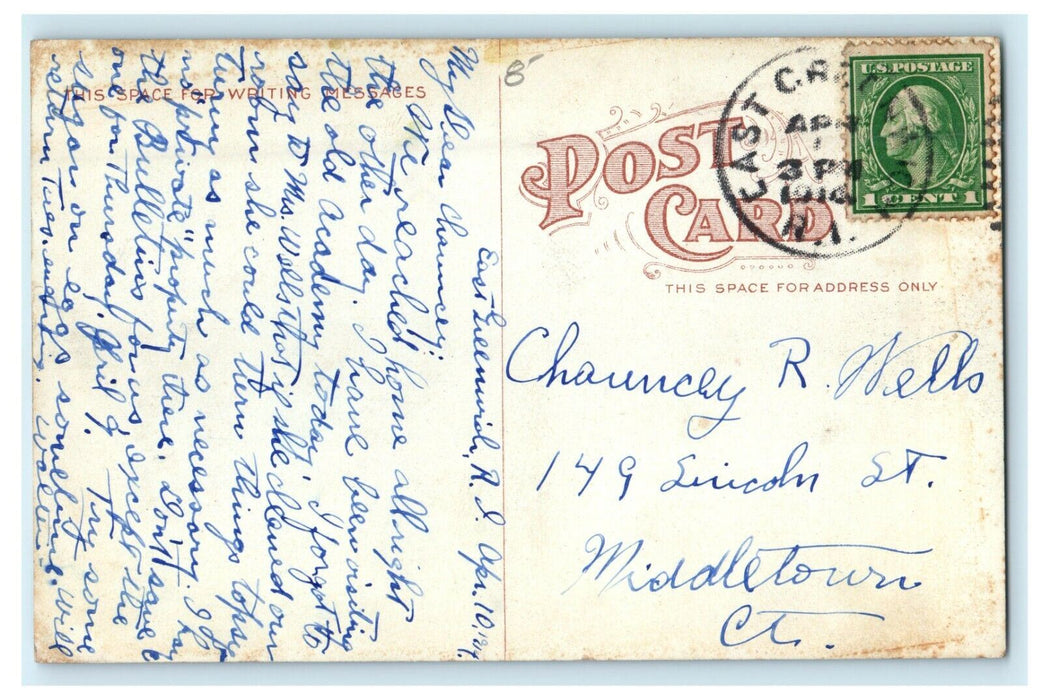 THIS SPACE FOR WRITING MESSAGES
East Greenwich, R. I. Apr. 10, 1914
My dear Chauncey:
We reached home all right
the other day. I have been visiting
the old academy today. I forgot to
say to Mrs. Wells that if she cleaned our
room she could turn things topsy
turvy as much as necessary. I have
no "private" property there. Don't save
the Bulletins for us, except the
one for Thursday, April 9. Try some
sugar on eggs sometime. Will
return Tues. evening.
8
POST
CARD
EAST
APR
3 PM
R.I.
U.S. POSTAGE
1 CENT 1
THIS SPACE FOR ADDRESS ONLY
Chauncey R. Wells
149 Lincoln St.
Middletown
Ct.